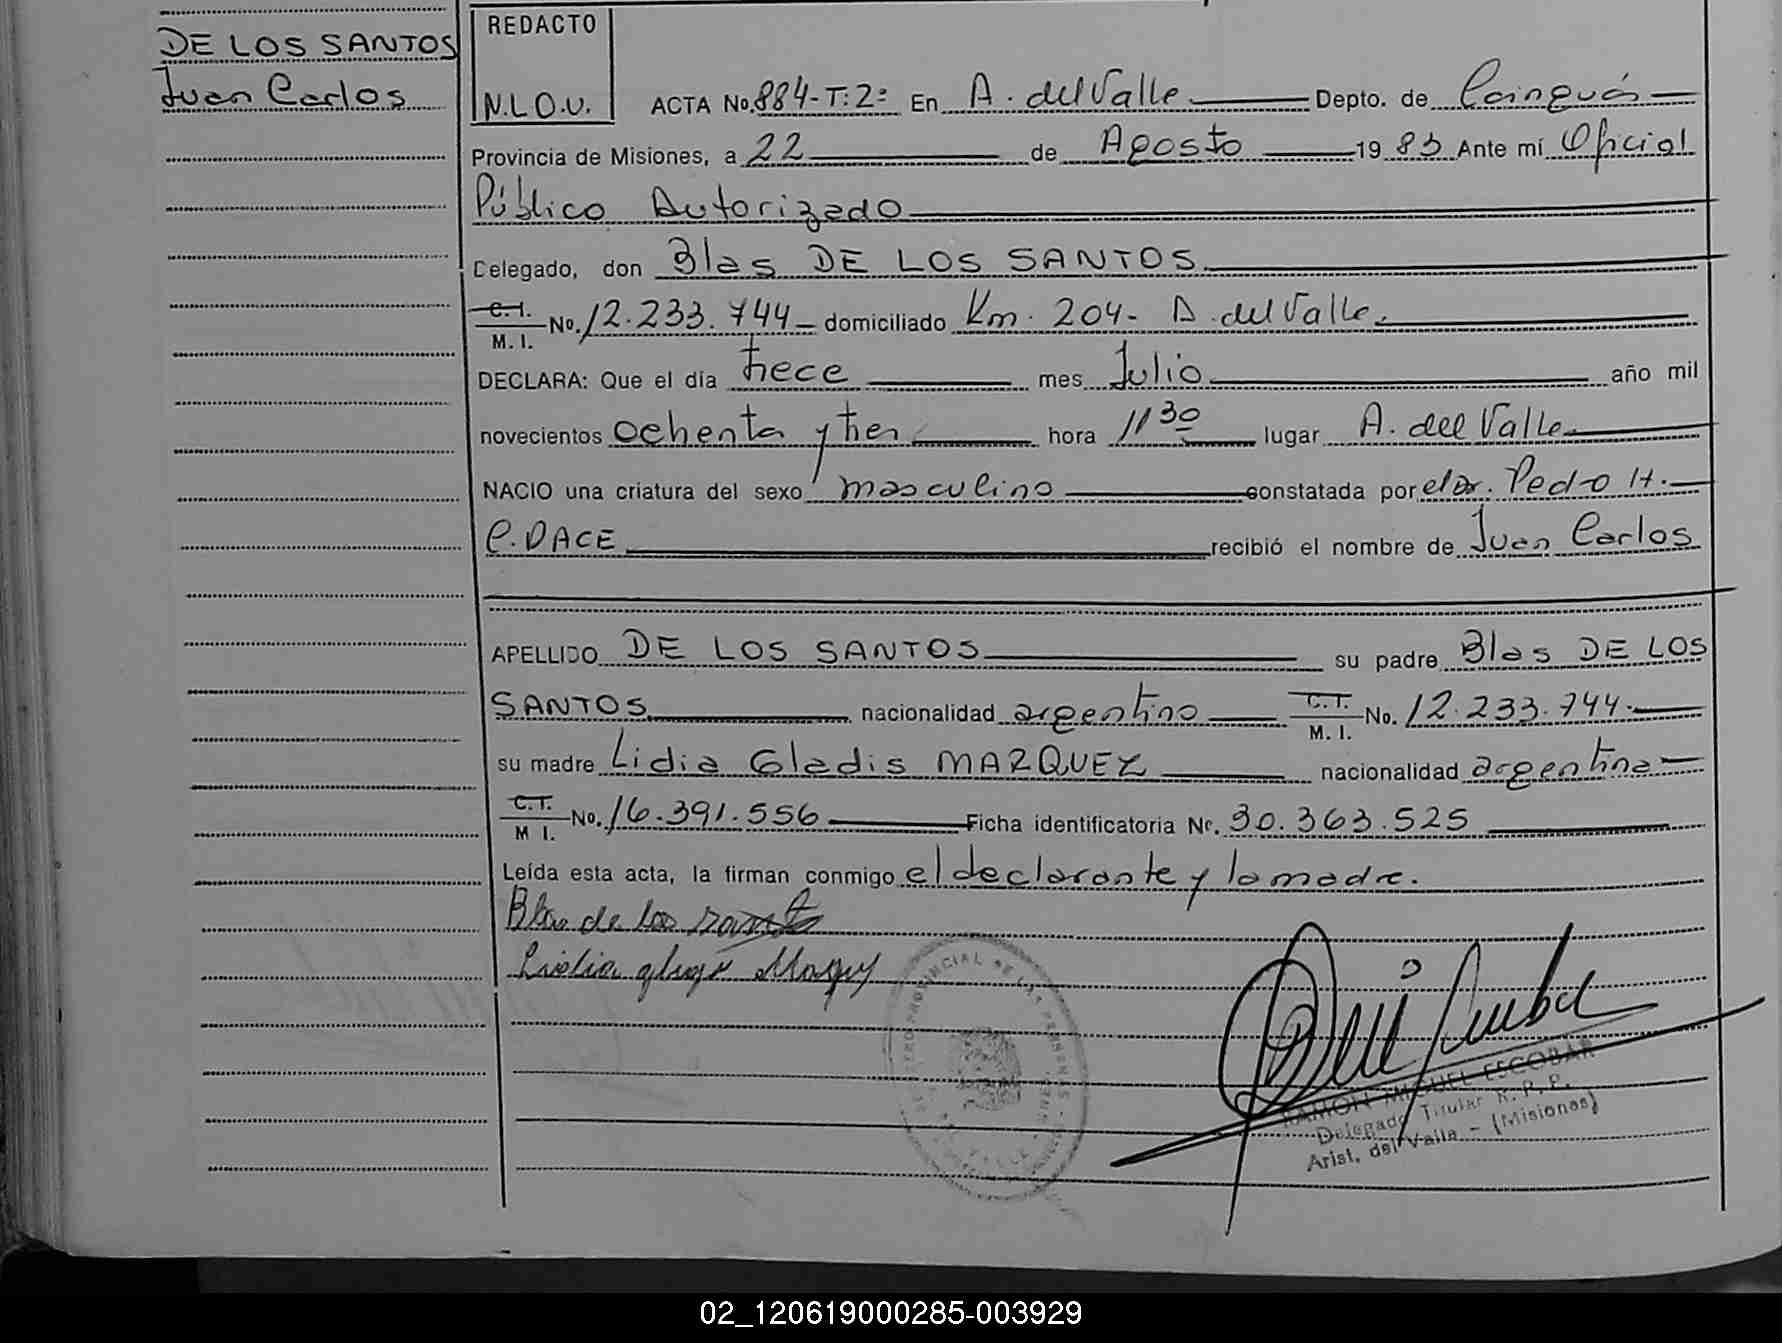 DE LOS SANTOS
Juan Carlos
REDACTO
N.L.O.V.
ACTA No. 884-T:2º En A. del Valle Depto. de Cainguás
Provincia de Misiones, a 22 de Agosto 1983 Ante mí Oficial
Público Autorizado
Delegado, don Blas DE LOS SANTOS
C.I.
M. I. No. 12.233.744 domiciliado Km. 204- A. del Valle.
DECLARA: Que el día trece mes Julio año mil
novecientos ochenta y tres hora 11 30 lugar A. del Valle
NACIO una criatura del sexo masculino constatada por el Dr. Pedro H.
C. DACE recibió el nombre de Juan Carlos
APELLIDO DE LOS SANTOS su padre Blas DE LOS
SANTOS nacionalidad argentino C.I. M. I. No. 12.233.744.
su madre Lidia Gladis MARQUEZ nacionalidad argentina
C.I. M I. No. 16.391.556 Ficha identificatoria No. 30.363.525
Leída esta acta, la firman conmigo el declarante y la madre.
Blas de los
RAMON MIGUEL ESCOBAR
Delegado Titular R. P. P.
Arist. del Valle - (Misiones)
02_120619000285-003929